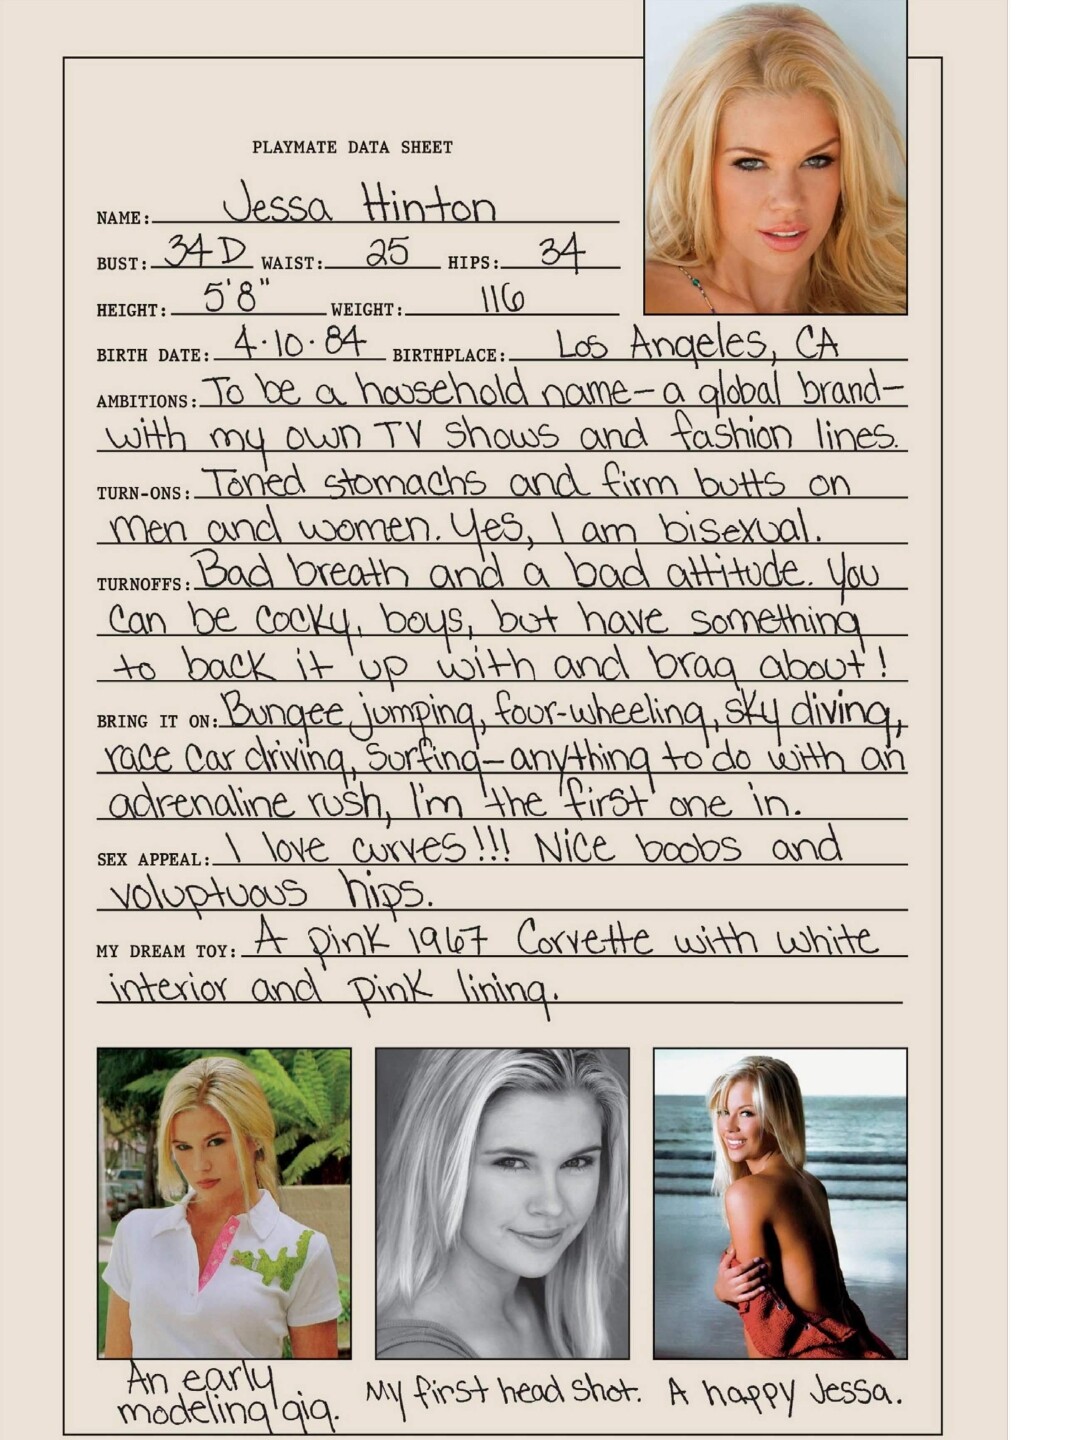 PLAYMATE DATA SHEET
NAME: Jessa Hinton
BUST: 34D WAIST: 25 HIPS: 34
HEIGHT: 5'8" WEIGHT: 116
BIRTH DATE: 4·10·84 BIRTHPLACE: Los Angeles, CA
AMBITIONS: To be a household name—a global brand—
with my own TV shows and fashion lines.
TURN-ONS: Toned stomachs and firm butts on
men and women. Yes, I am bisexual.
TURNOFFS: Bad breath and a bad attitude. You
can be cocky, boys, but have something
to back it up with and brag about!
BRING IT ON: Bungee jumping, four-wheeling, sky diving,
race car driving, surfing—anything to do with an
adrenaline rush, I'm the first one in.
SEX APPEAL: I love curves!!! Nice boobs and
voluptuous hips.
MY DREAM TOY: A pink 1967 Corvette with white
interior and pink lining.
An early
modeling gig.
My first head shot.
A happy Jessa.